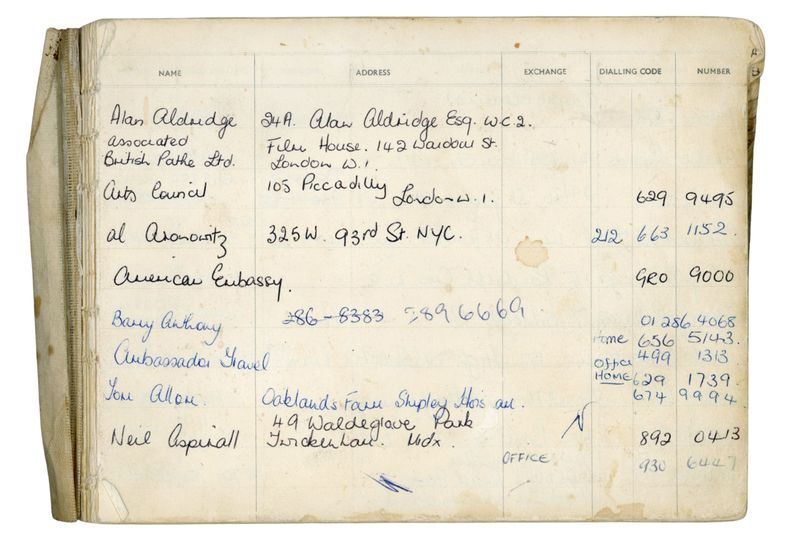 NAME ADDRESS EXCHANGE DIALLING CODE NUMBER
Alan Aldridge 24A. Alan Aldridge Esq. W.C.2.
Associated Film House. 142 Wardour St.
British Pathe Ltd. London W.1.
Arts Council 105 Piccadilly London W.1. 629 9495
al Aronowitz 325 W. 93rd St. NYC. 212 663 1152.
American Embassy. GRO 9000
Barry Anthony 286-8383 789 6669 01 286 4068
Home 656 5143.
Ambassador Travel Office 499 1313
HOME 629 1739.
Tom Allom. Oaklands Farm Shipley Hors 674 9994
Neil Aspinall 49 Waldegrove Park
Twickenham. Midx. 892 0413
OFFICE 930 6447